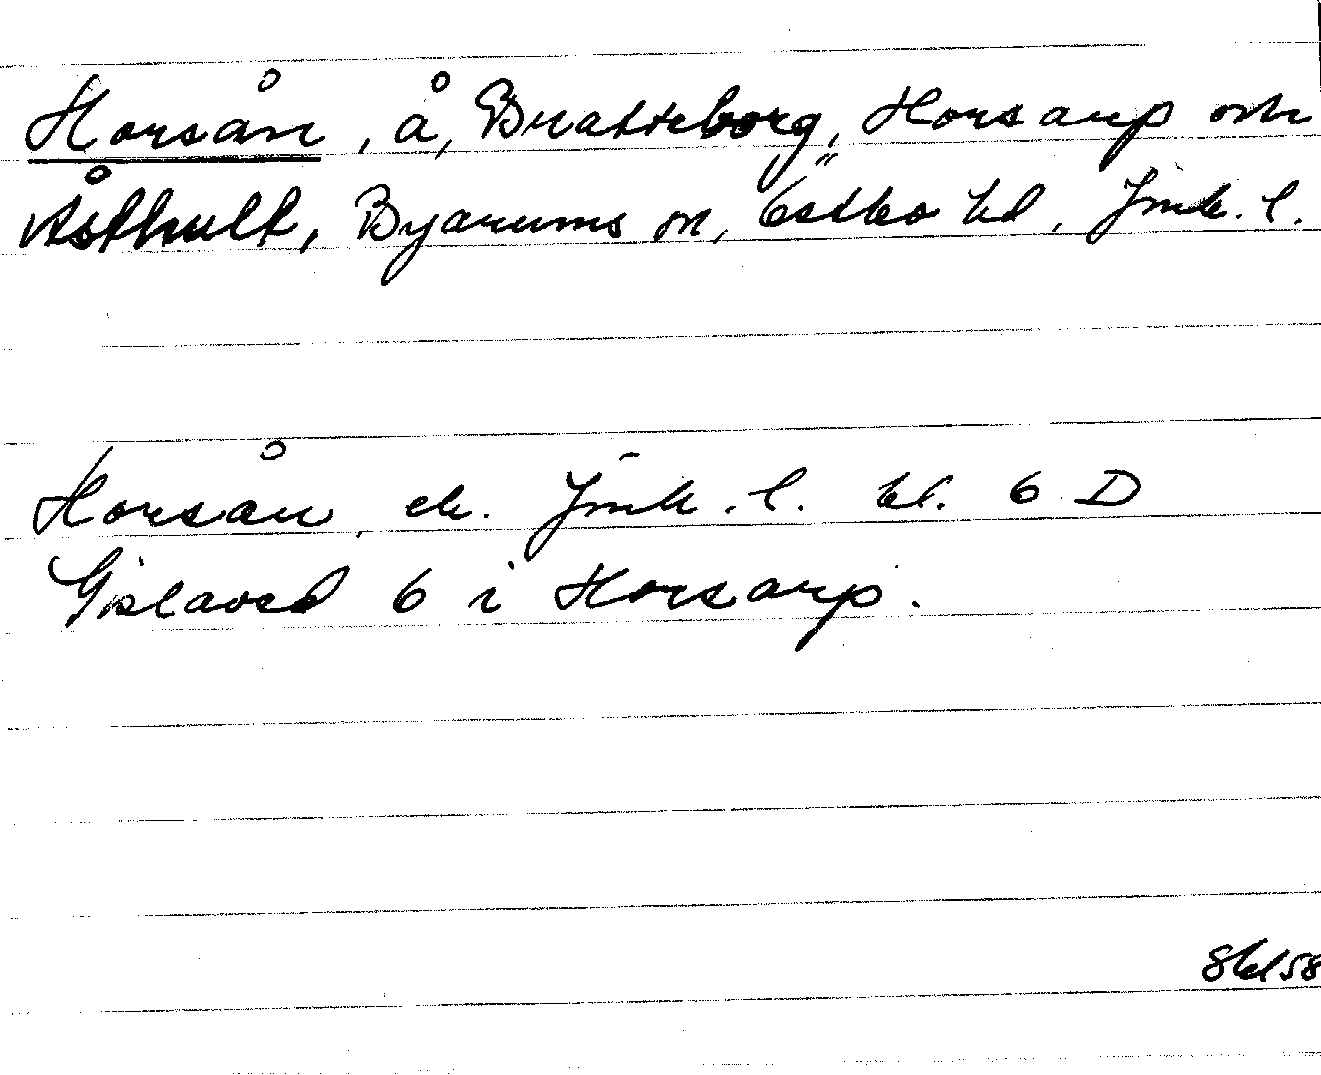 Horsån, å, Bratteborg, Horsarp och
Åsthult, Byarums sn, Östbo hd, Jönk. l.
Horsån ek. Jönk. l. bl. 6 D
Gislaved 6 i Horsarp.